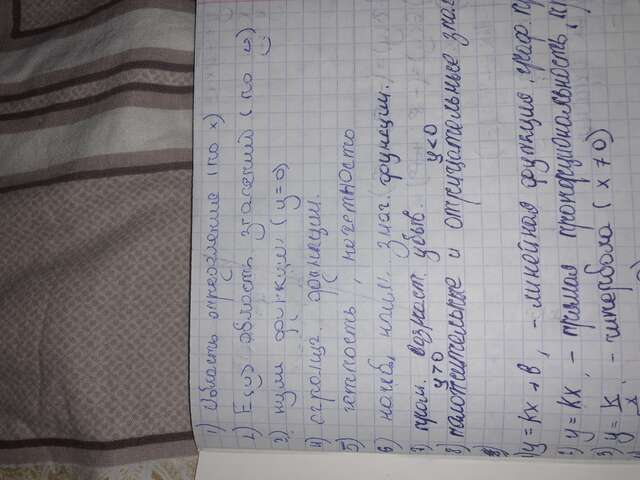 1) Область определения (по x)
2) E(y) область значений (по y)
3) нули функции (y=0)
4) функции.
5) четность, нечетность
6) наиб, наим, знач. функции.
7) пром. возраст. убыв.
y>0 y<0
8) положительные и отрицательные знач
9)
1) y = kx + b, - линейная функция, граф. пр
2) y = kx, - прямая пропорциональность, пр
3) y = k/x, - гипербола (x ≠ 0)